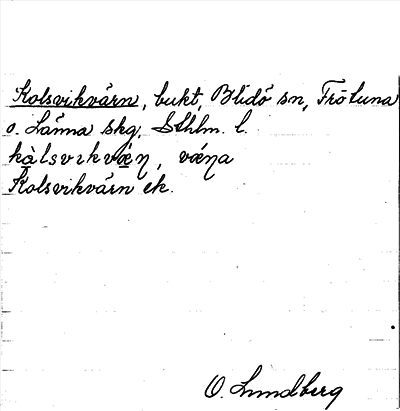 Kolsvikvärn, bukt, Blidö sn, Frötuna
o. Länna skg, Sthlm. l.
kàlsvikvæ̀ṇ, vǽṇa
Kolsvikvärn ek.
O. Lundberg